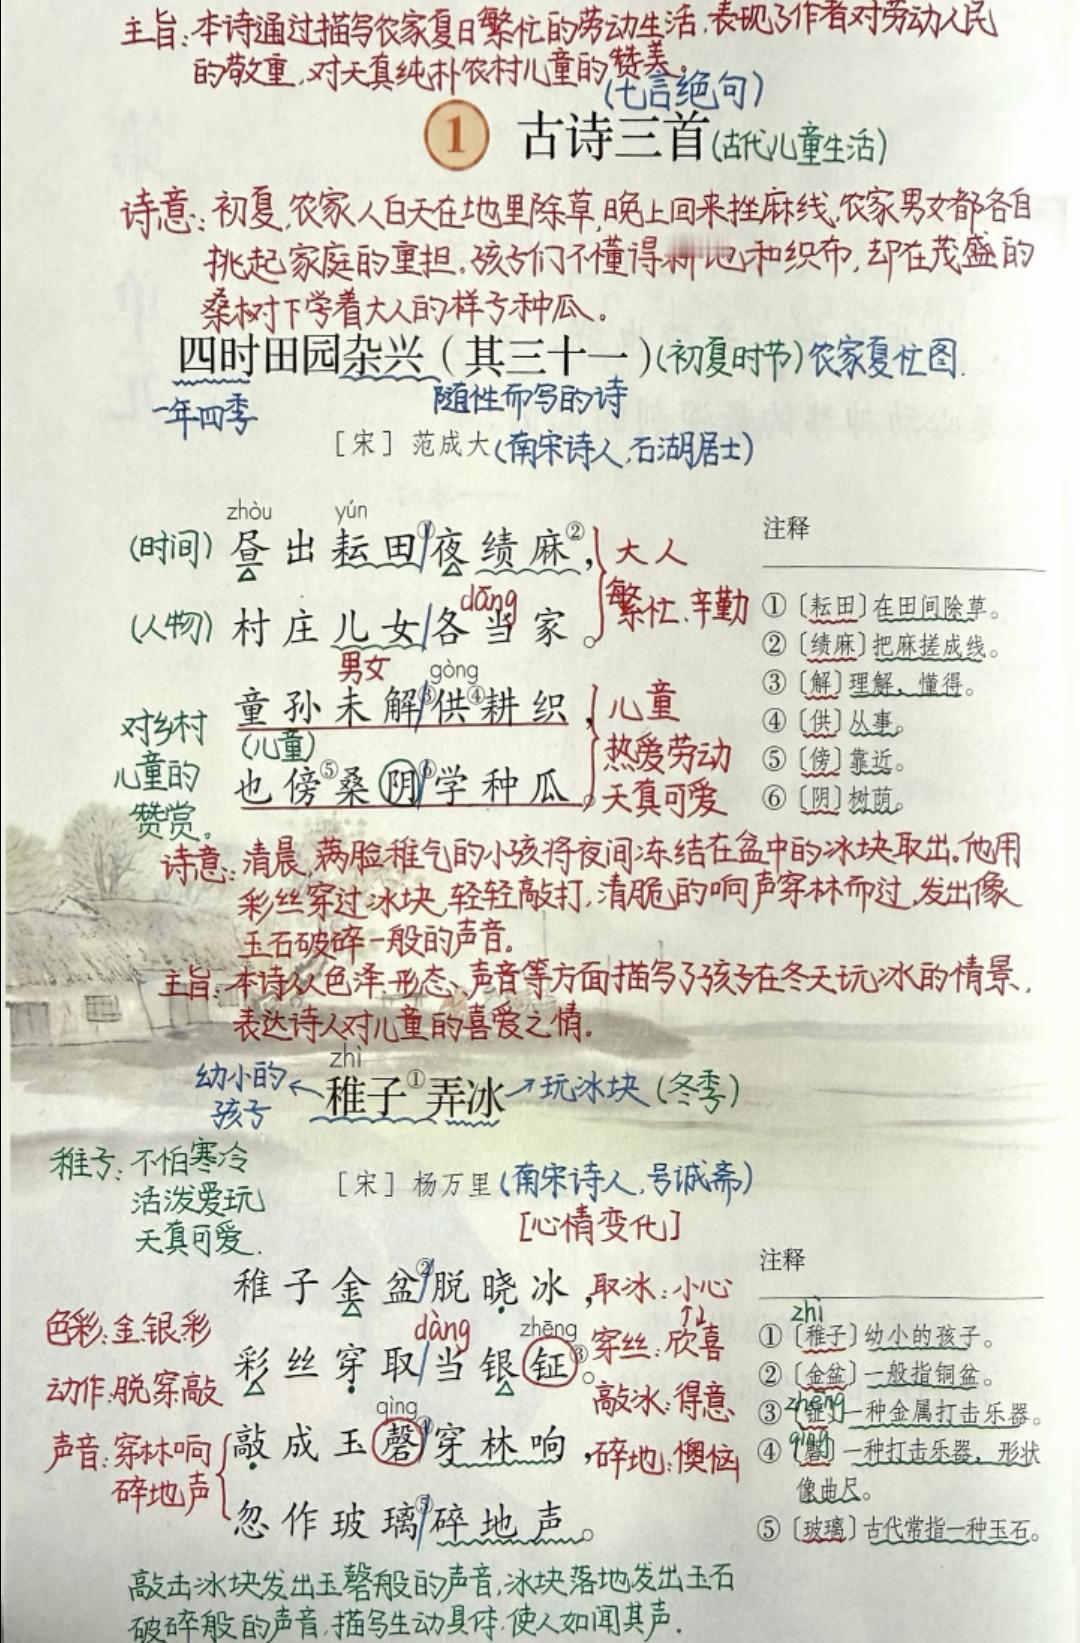 主旨:本诗通过描写农家夏日繁忙的劳动生活,表现了作者对劳动人民
的敬重,对天真纯朴农村儿童的赞美。
(七言绝句)
1 古诗三首(古代儿童生活)
诗意:初夏,农家人白天在地里除草,晚上回来挫麻线,农家男女都各自
挑起家庭的重担,孩子们不懂得耕地和织布,却在茂盛的
桑树下学着大人的样子种瓜。
四时田园杂兴(其三十一)(初夏时节)农家夏忙图.
一年四季 随性而写的诗
[宋] 范成大(南宋诗人,石湖居士)
zhòu yún
(时间) 昼出耘田①/夜绩麻②,
大人
繁忙、辛勤
dāng
(人物) 村庄儿女/各当家。
男女 gòng
童孙未解③/供④耕织,
(儿童)
也傍⑤桑阴⑥/学种瓜。
儿童
热爱劳动
天真可爱
对乡村
儿童的
赞赏。
注释
①〔耘田〕在田间除草。
②〔绩麻〕把麻搓成线。
③〔解〕理解、懂得。
④〔供〕从事。
⑤〔傍〕靠近。
⑥〔阴〕树荫。
诗意:清晨,满脸稚气的小孩将夜间冻结在盆中的冰块取出。他用
彩丝穿过冰块,轻轻敲打,清脆的响声穿林而过,发出像
玉石破碎一般的声音。
主旨:本诗从色泽、形态、声音等方面描写了孩子在冬天玩冰的情景,
表达诗人对儿童的喜爱之情。
zhì
幼小的
孩子
← 稚子①弄冰 → 玩冰块(冬季)
稚子:不怕寒冷
活泼爱玩
天真可爱.
[宋] 杨万里(南宋诗人,号诚斋)
[心情变化]
稚子金盆②/脱晓冰,取冰:小心
↑↓
色彩:金银彩
dàng zhēng
彩丝穿取/当银钲③。穿丝:欣喜
动作:脱穿敲
敲冰:得意
qìng
声音:穿林响
碎地声
敲成玉磬④/穿林响,碎地:懊恼
忽作玻璃⑤/碎地声。
注释
zhì
①〔稚子〕幼小的孩子。
②〔金盆〕一般指铜盆。
zhēng
③〔钲〕一种金属打击乐器。
qìng
④〔磬〕一种打击乐器,形状
像曲尺。
⑤〔玻璃〕古代常指一种玉石。
敲击冰块发出玉磬般的声音,冰块落地发出玉石
破碎般的声音,描写生动具体,使人如闻其声.